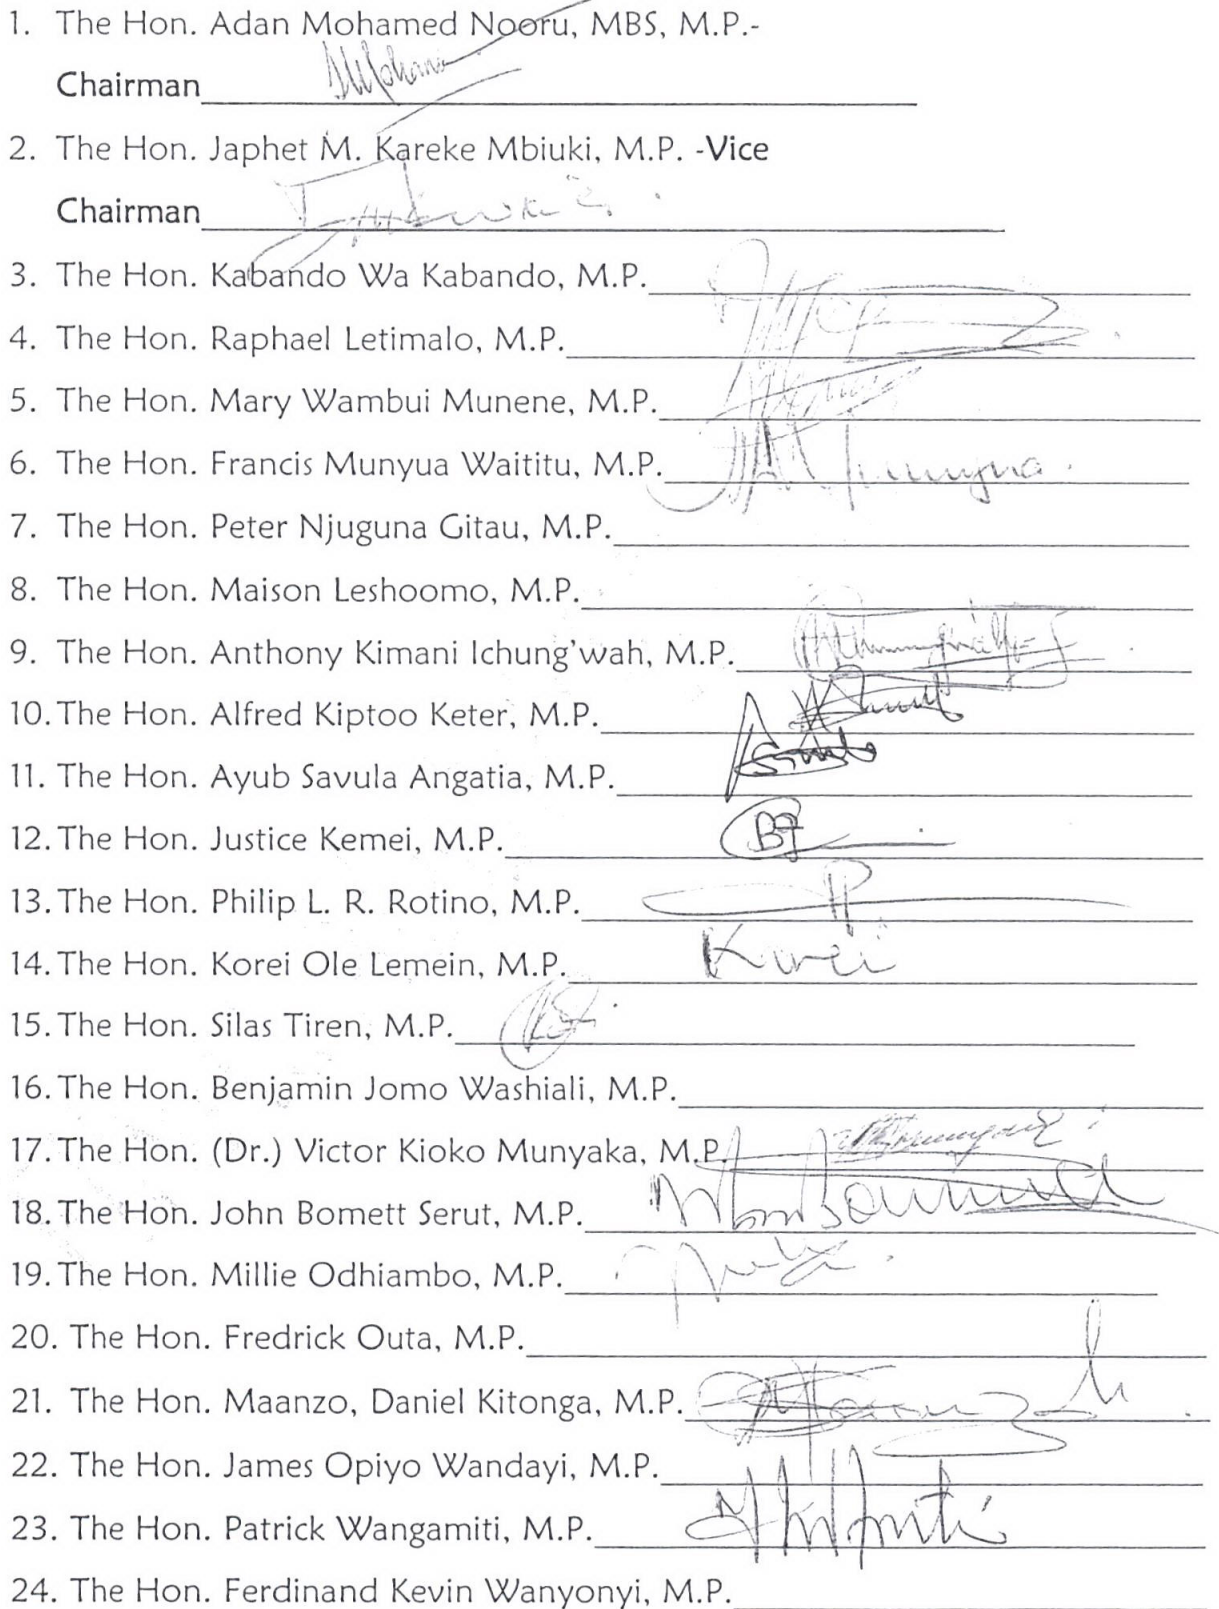 1. The Hon. Adan Mohamed Nooru, MBS, M.P.-
Chairman
2. The Hon. Japhet M. Kareke Mbiuki, M.P. -Vice
Chairman
3. The Hon. Kabando Wa Kabando, M.P.
4. The Hon. Raphael Letimalo, M.P.
5. The Hon. Mary Wambui Munene, M.P.
6. The Hon. Francis Munyua Waititu, M.P.
7. The Hon. Peter Njuguna Gitau, M.P.
8. The Hon. Maison Leshoomo, M.P.
9. The Hon. Anthony Kimani Ichung'wah, M.P.
10. The Hon. Alfred Kiptoo Keter, M.P.
11. The Hon. Ayub Savula Angatia, M.P.
12. The Hon. Justice Kemei, M.P.
13. The Hon. Philip L. R. Rotino, M.P.
14. The Hon. Korei Ole Lemein, M.P. Korei
15. The Hon. Silas Tiren, M.P.
16. The Hon. Benjamin Jomo Washiali, M.P.
17. The Hon. (Dr.) Victor Kioko Munyaka, M.P.
18. The Hon. John Bomett Serut, M.P.
19. The Hon. Millie Odhiambo, M.P.
20. The Hon. Fredrick Outa, M.P.
21. The Hon. Maanzo, Daniel Kitonga, M.P.
22. The Hon. James Opiyo Wandayi, M.P.
23. The Hon. Patrick Wangamiti, M.P.
24. The Hon. Ferdinand Kevin Wanyonyi, M.P.